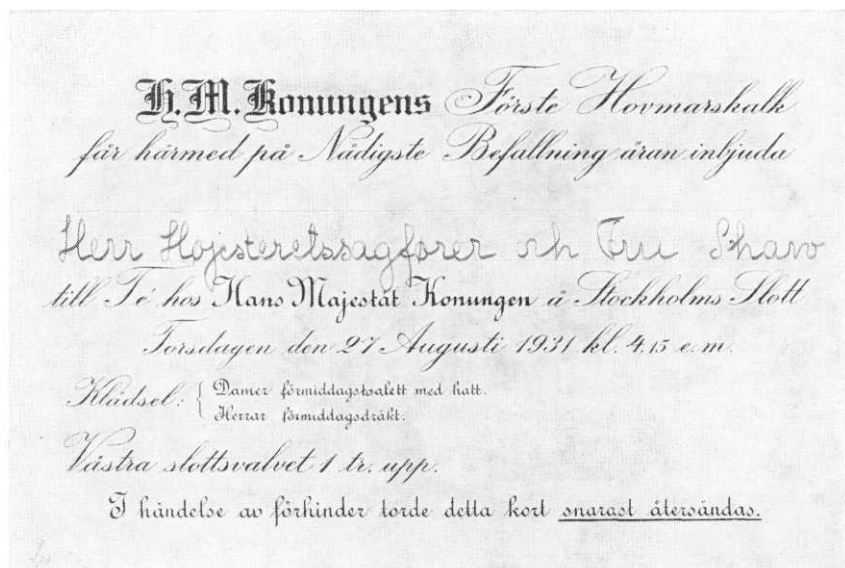 H. M. Konungens Förste Hovmarskalk
får härmed på Nådigste Befallning äran inbjuda
Herr Højesteretssagfører och Fru Shaw
till Té hos Hans Majestät Konungen å Stockholms Slott
Torsdagen den 27 Augusti 1931 kl. 4,15 e.m.
Klädsel: { Damer förmiddagstoalett med hatt.
Herrar förmiddagsdräkt.
Västra slottsvalvet 1 tr. upp.
I händelse av förhinder torde detta kort snarast återsändas.